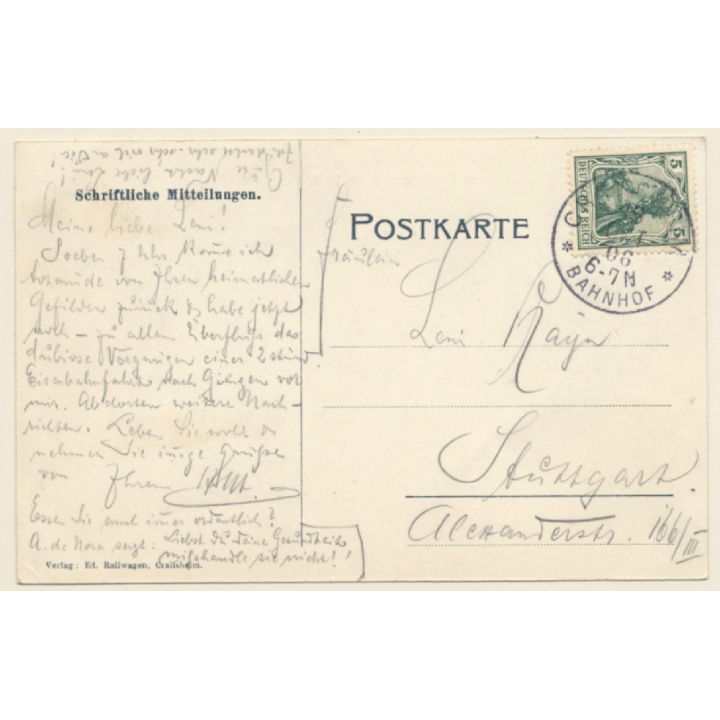 Gute Nacht liebe Leni!
Schriftliche Mitteilungen.
Meine liebe Leni!
Soeben 7 Uhr komme ich
von Ihren heimatlichen
Gefilden zurück & habe jetzt
noch – zu allem Überfluss das
dubiose Vergnügen einer 2 stünd.
Eisenbahnfahrt nach Giengen vor
mir. Ab dorten weitere Nach-
richten. Leben Sie wohl &
nehmen Sie innige Grüsse
von Ihrem
Essen Sie auch immer ordentlich?
A. de Nora sagt: Liebst du deine Gesundheit
mishandle sie nicht!
Verlag: Ed. Rollwagen, Crailsheim.
POSTKARTE
Fräulein
Leni
Stuttgart.
Alexanderstr. 166/III
5
5
DEUTSCHES REICH
06
6-7N
* BAHNHOF *